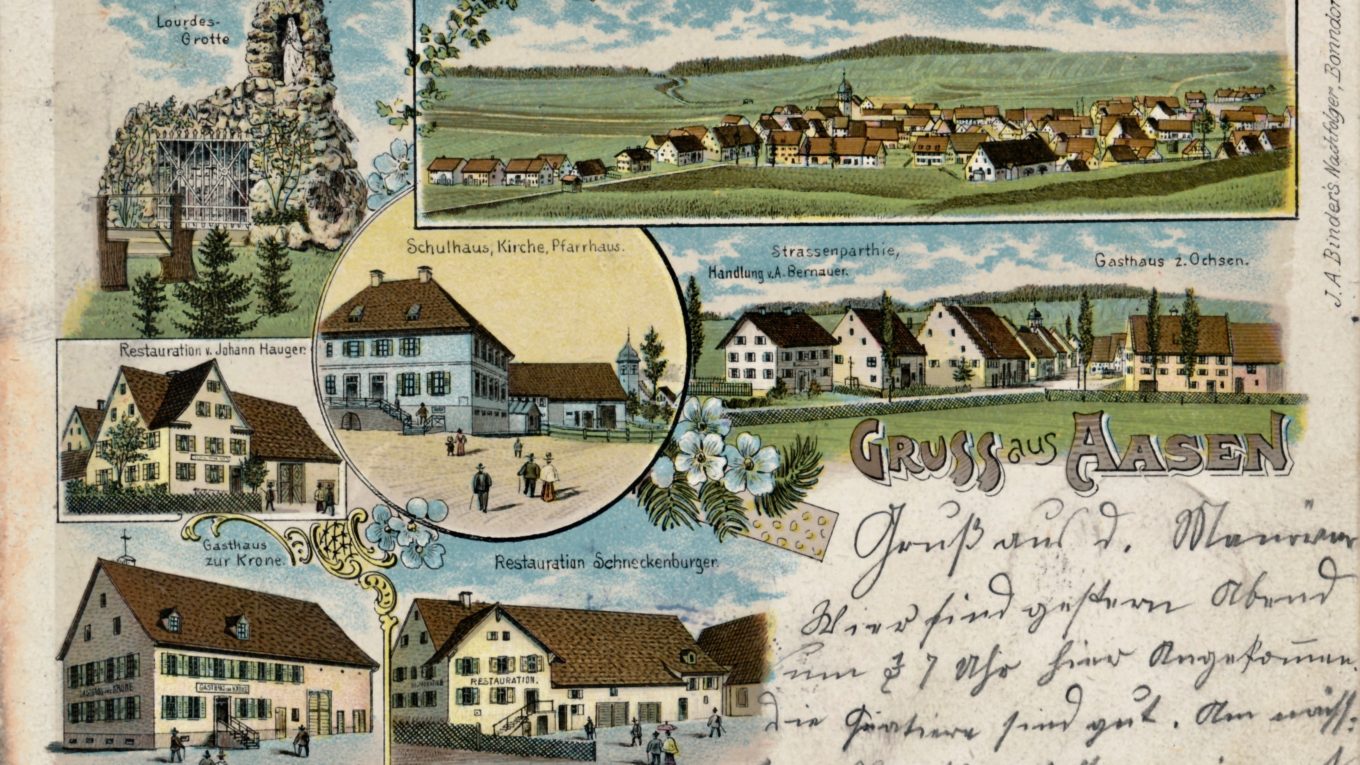 Lourdes-
Grotte
J.A. Binder's Nachfolger, Bonndor
Schulhaus, Kirche, Pfarrhaus.
Strassenparthie,
Handlung v. A. Bernauer.
Gasthaus z. Ochsen.
Restauration v. Johann Hauger.
GRUSS aus AASEN
Gasthaus
zur Krone.
Restauration Schneckenburger.
RESTAURATION.
GASTHAUS ZUR KRONE
Gruß aus d. Manöver
Wier sind gestern Abend
um 7 Uhr hier Angekommen.
die Quatiere sind gut. Am nächs-